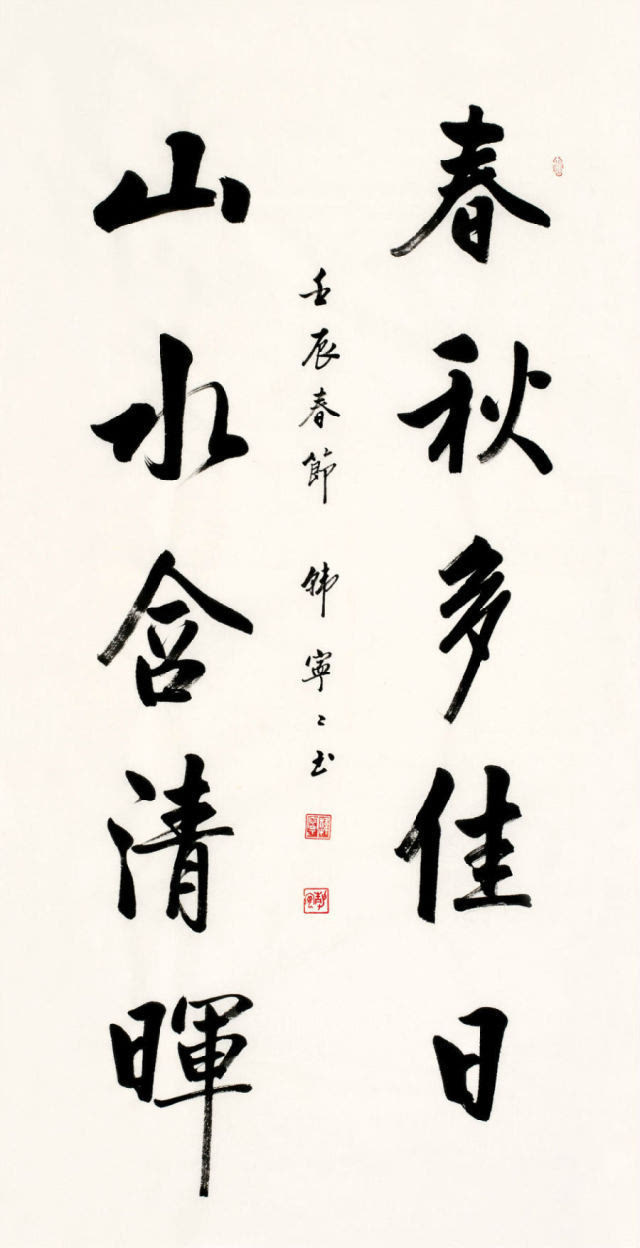 春秋多佳日
壬辰春節 韩寧〻书
山水含清暉